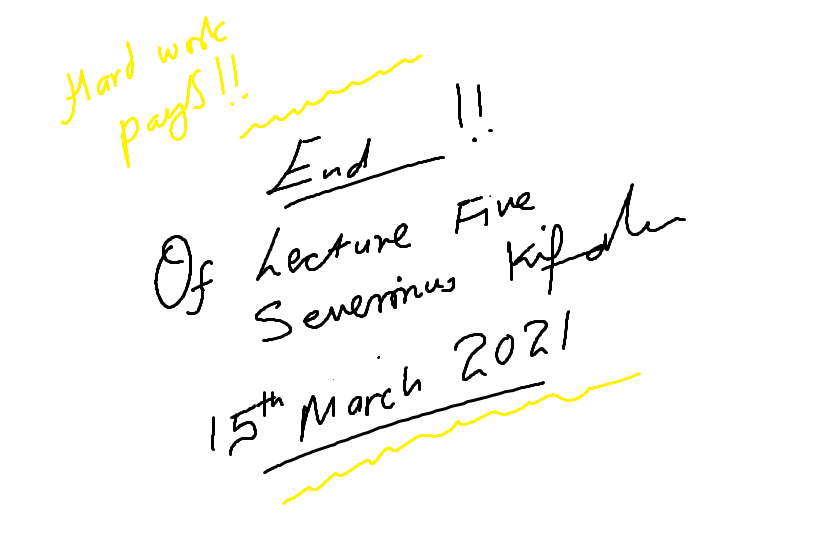 Hard work
pays!!
End !!
Of Lecture Five
Severinus
15th March 2021